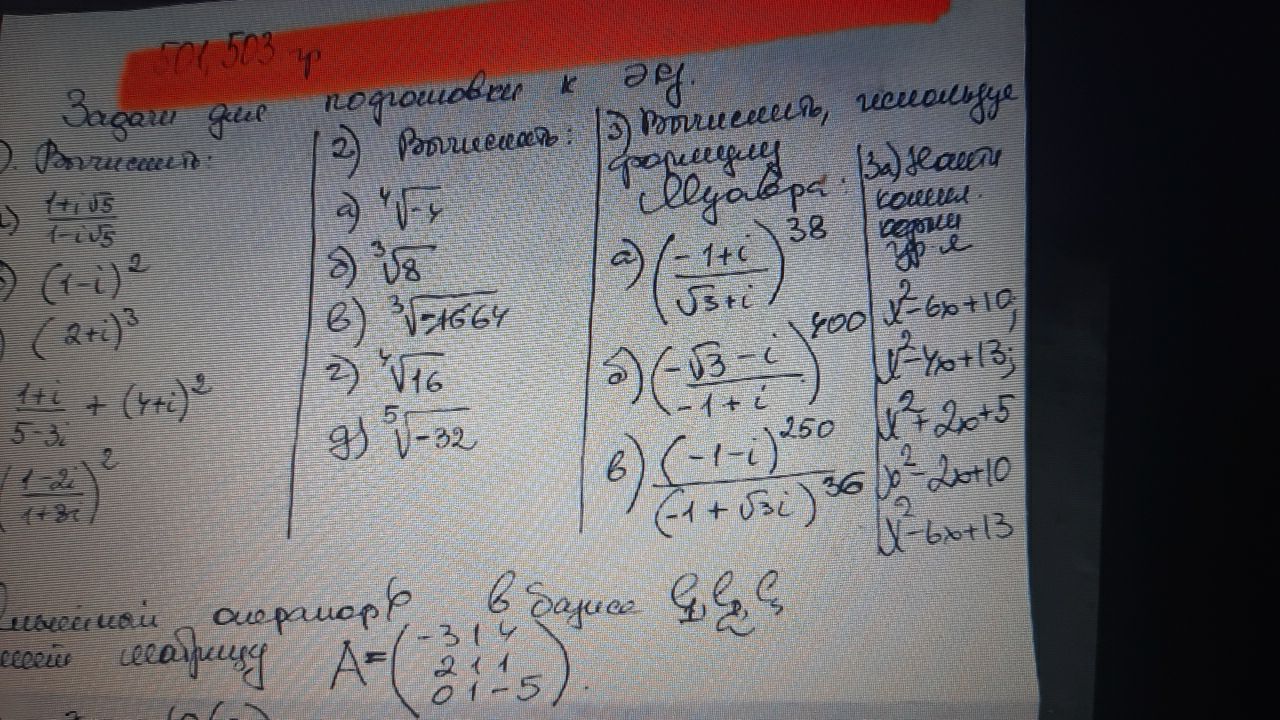 501, 503 гр
Задачи для подготовки к экз.
). Вычислить:
) (1+i√5)/(1-i√5)
) (1-i)²
) (2+i)³
(1+i)/(5-3i) + (4+i)²
((1-2i)/(1+3i))²
2) Вычислить:
а) ⁴√-4
б) ³√8
в)
г) ⁴√16
д) ⁵√-32
3) Вычислить, используя
формулу
Муавра:
а) ((-1+i)/(√3+i))^38
б) ((-√3-i)/(-1+i))^400
в) (-1-i)^250/(-1+√3i)^36
3а) Найти
компл.
корни
ур-я
x²-6x+10;
x²-4x+13;
x²+2x+5
x²-2x+10
x²-6x+13
оператор φ в базисе
матрицу A=
(-3 1 4
2 1 1
0 1 -5).